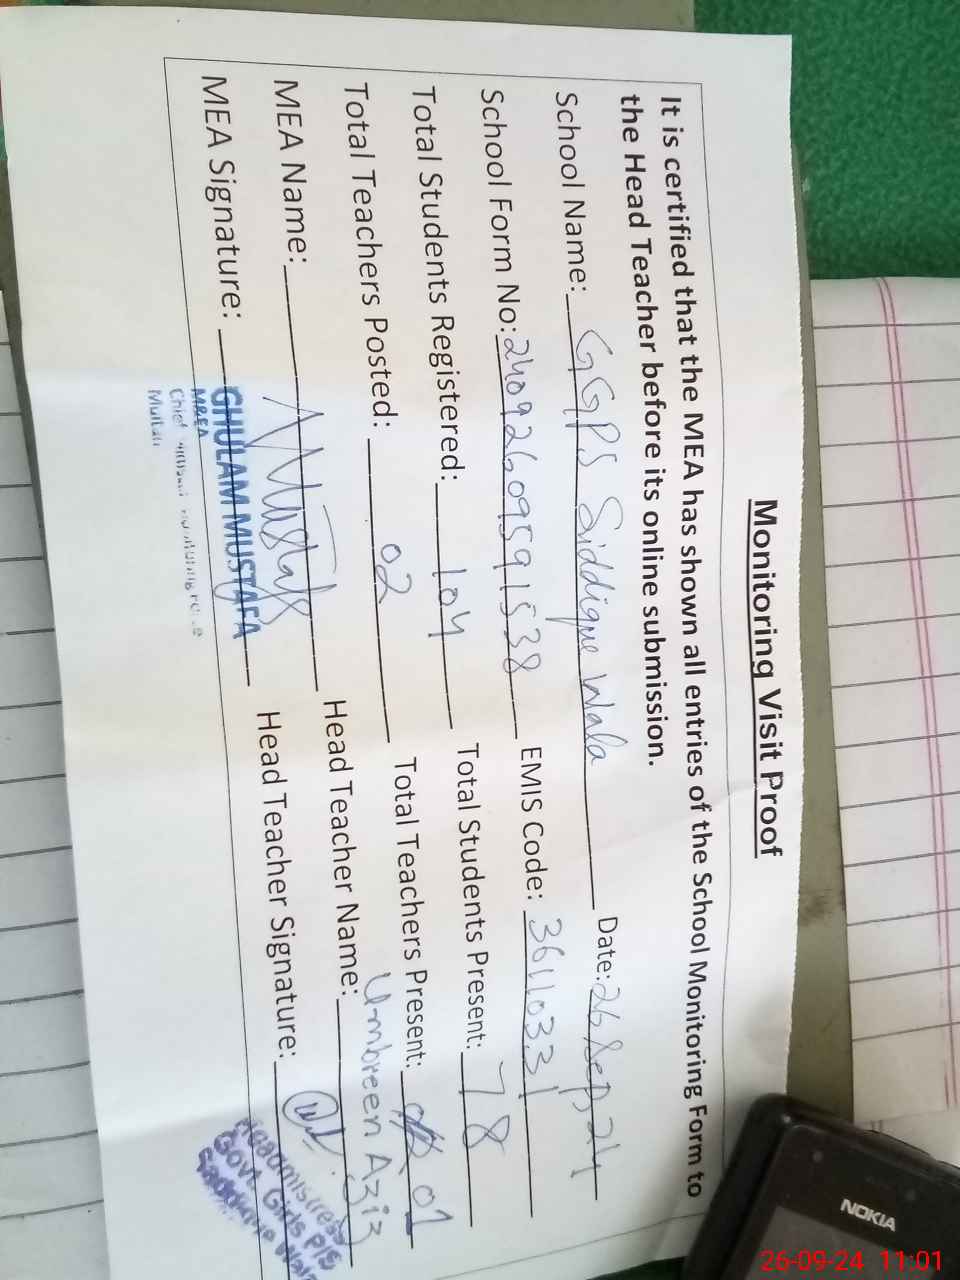 Monitoring Visit Proof
It is certified that the MEA has shown all entries of the School Monitoring Form to
the Head Teacher before its online submission.
School Name: GGPS Siddique Wala Date: 26 Sep 24
School Form No: 24092609591538 EMIS Code: 36110331
Total Students Registered: 104 Total Students Present: 78
Total Teachers Posted: 02 Total Teachers Present: 01
MEA Name: Head Teacher Name: Umbreen Aziz
MEA Signature: Head Teacher Signature:
GHULAM MUSTAFA
M&EA
Chief
Multan
Headmistress
Govt. Girls P/S
Wala
NOKIA
26-09-24 11:01